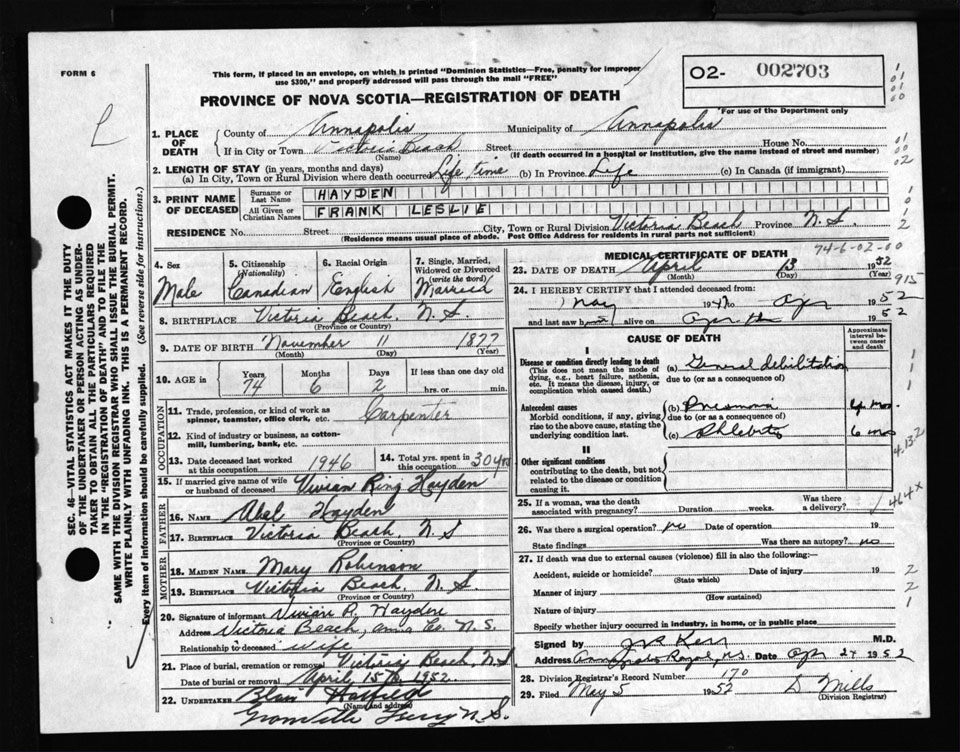 FORM 6
This form, if placed in an envelope, on which is printed "Dominion Statistics—Free, penalty for improper
use $300," and properly addressed will pass through the mail "FREE"
02- 002703
For use of the Department only
PROVINCE OF NOVA SCOTIA—REGISTRATION OF DEATH
1. PLACE OF DEATH
County of Annapolis Municipality of Annapolis
If in City or Town Victoria Beach Street House No.
(Name) (If death occurred in a hospital or institution, give the name instead of street and number)
2. LENGTH OF STAY (in years, months and days)
(a) In City, Town or Rural Division where death occurred Life time (b) In Province Life (c) In Canada (if immigrant)
3. PRINT NAME OF DECEASED
Surname or Last Name HAYDEN
All Given or Christian Names FRANK LESLIE
RESIDENCE No. Street City, Town or Rural Division Victoria Beach Province N.S.
(Residence means usual place of abode. Post Office Address for residents in rural parts not sufficient)
74-6-02-00
4. Sex Male
5. Citizenship (Nationality) Canadian
6. Racial Origin English
7. Single, Married, Widowed or Divorced (write the word) Married
8. BIRTHPLACE Victoria Beach, N.S.
(Province or Country)
9. DATE OF BIRTH November 11 1877
(Month) (Day) (Year)
10. AGE in Years 74 Months 6 Days 2 If less than one day old
hrs. or min.
OCCUPATION
11. Trade, profession, or kind of work as spinner, teamster, office clerk, etc. Carpenter
12. Kind of industry or business, as cotton-mill, lumbering, bank, etc.
13. Date deceased last worked at this occupation 1946
14. Total yrs. spent in this occupation 30 yrs
15. If married give name of wife or husband of deceased Vivian Ring Hayden
FATHER
16. NAME Abel Hayden
17. BIRTHPLACE Victoria Beach, N.S
(Province or Country)
MOTHER
18. MAIDEN NAME Mary Robinson
19. BIRTHPLACE Victoria Beach, N.S.
(Province or Country)
20. Signature of informant Vivian R. Hayden
Address Victoria Beach, Anna Co. N.S.
Relationship to deceased Wife
21. Place of burial, cremation or removal Victoria Beach, N.S
Date of burial or removal April 15th 1952
22. UNDERTAKER Blair Hatfield
(Name and address)
Granville Ferry N.S.
MEDICAL CERTIFICATE OF DEATH
23. DATE OF DEATH April 13 1952
(Month) (Day)
24. I HEREBY CERTIFY that I attended deceased from:
May 19 to Apr 1952
and last saw h alive on Apr 1952
915
CAUSE OF DEATH
Approximate interval between onset and death
I
Disease or condition directly leading to death
(This does not mean the mode of dying, e.g., heart failure, asthenia, etc. It means the disease, injury, or complication which caused death.)
(a) General debilitation
due to (or as a consequence of)
Antecedent causes
Morbid conditions, if any, giving rise to the above cause, stating the underlying condition last.
(b) 4 mos.
due to (or as a consequence of)
(c) Phlebitis 6 mos
II
Other significant conditions
contributing to the death, but not related to the disease or condition causing it.
464x
25. If a woman, was the death associated with pregnancy? Duration weeks. Was there a delivery?
26. Was there a surgical operation? no Date of operation 19
State findings Was there an autopsy? no
27. If death was due to external causes (violence) fill in also the following:—
Accident, suicide or homicide? Date of injury 19
(State which)
Manner of injury
(How sustained)
Nature of injury
Specify whether injury occurred in industry, in home, or in public place
Signed by Kerr M.D.
Address Annapolis Royal, N.S. Date Apr 24 1952
28. Division Registrar's Record Number 170
29. Filed May 5 1952 D. Mills
(Division Registrar)
SEC. 46—VITAL STATISTICS ACT MAKES IT THE DUTY
OF THE UNDERTAKER OR PERSON ACTING AS UNDER-
TAKER TO OBTAIN ALL THE PARTICULARS REQUIRED
IN THE "REGISTRATION OF DEATH" AND TO FILE THE
SAME WITH THE DIVISION REGISTRAR WHO SHALL ISSUE THE BURIAL PERMIT.
WRITE PLAINLY WITH UNFADING INK. THIS IS A PERMANENT RECORD.
Every item of information should be carefully supplied. (See reverse side for instructions.)